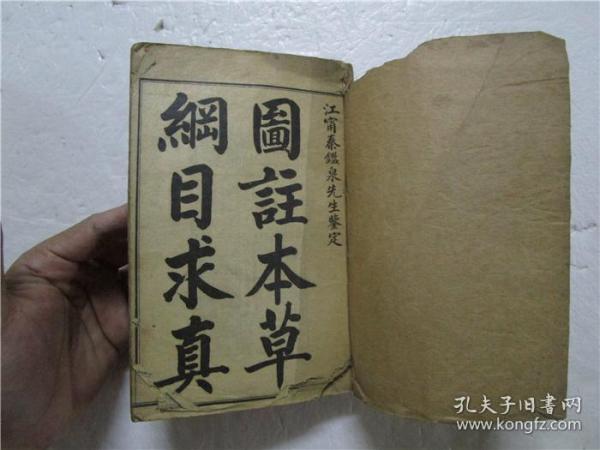 江甯秦鑑泉先生鑒定
圖註本草
綱目求真
孔夫子旧书网
www.kongfz.com